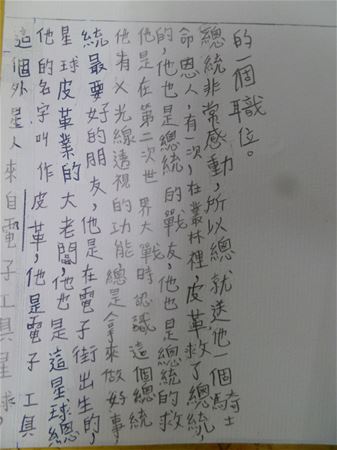 這個外星人來自電子工具星球，
他的名字叫作皮革，他是電子工具
星球皮革業的大老闆，他也是這星球總
統最要好的朋友，他是在電子街出生的，
他有X光線透視的功能，總是拿來做好事，
他是在第二次世界大戰時認識這個總統
的，他也是總統的戰友，他也是總統的救
命恩人，有一次，在叢林裡皮革救了總統，
總統非常感動，所以總就送他一個騎士
的一個職位。